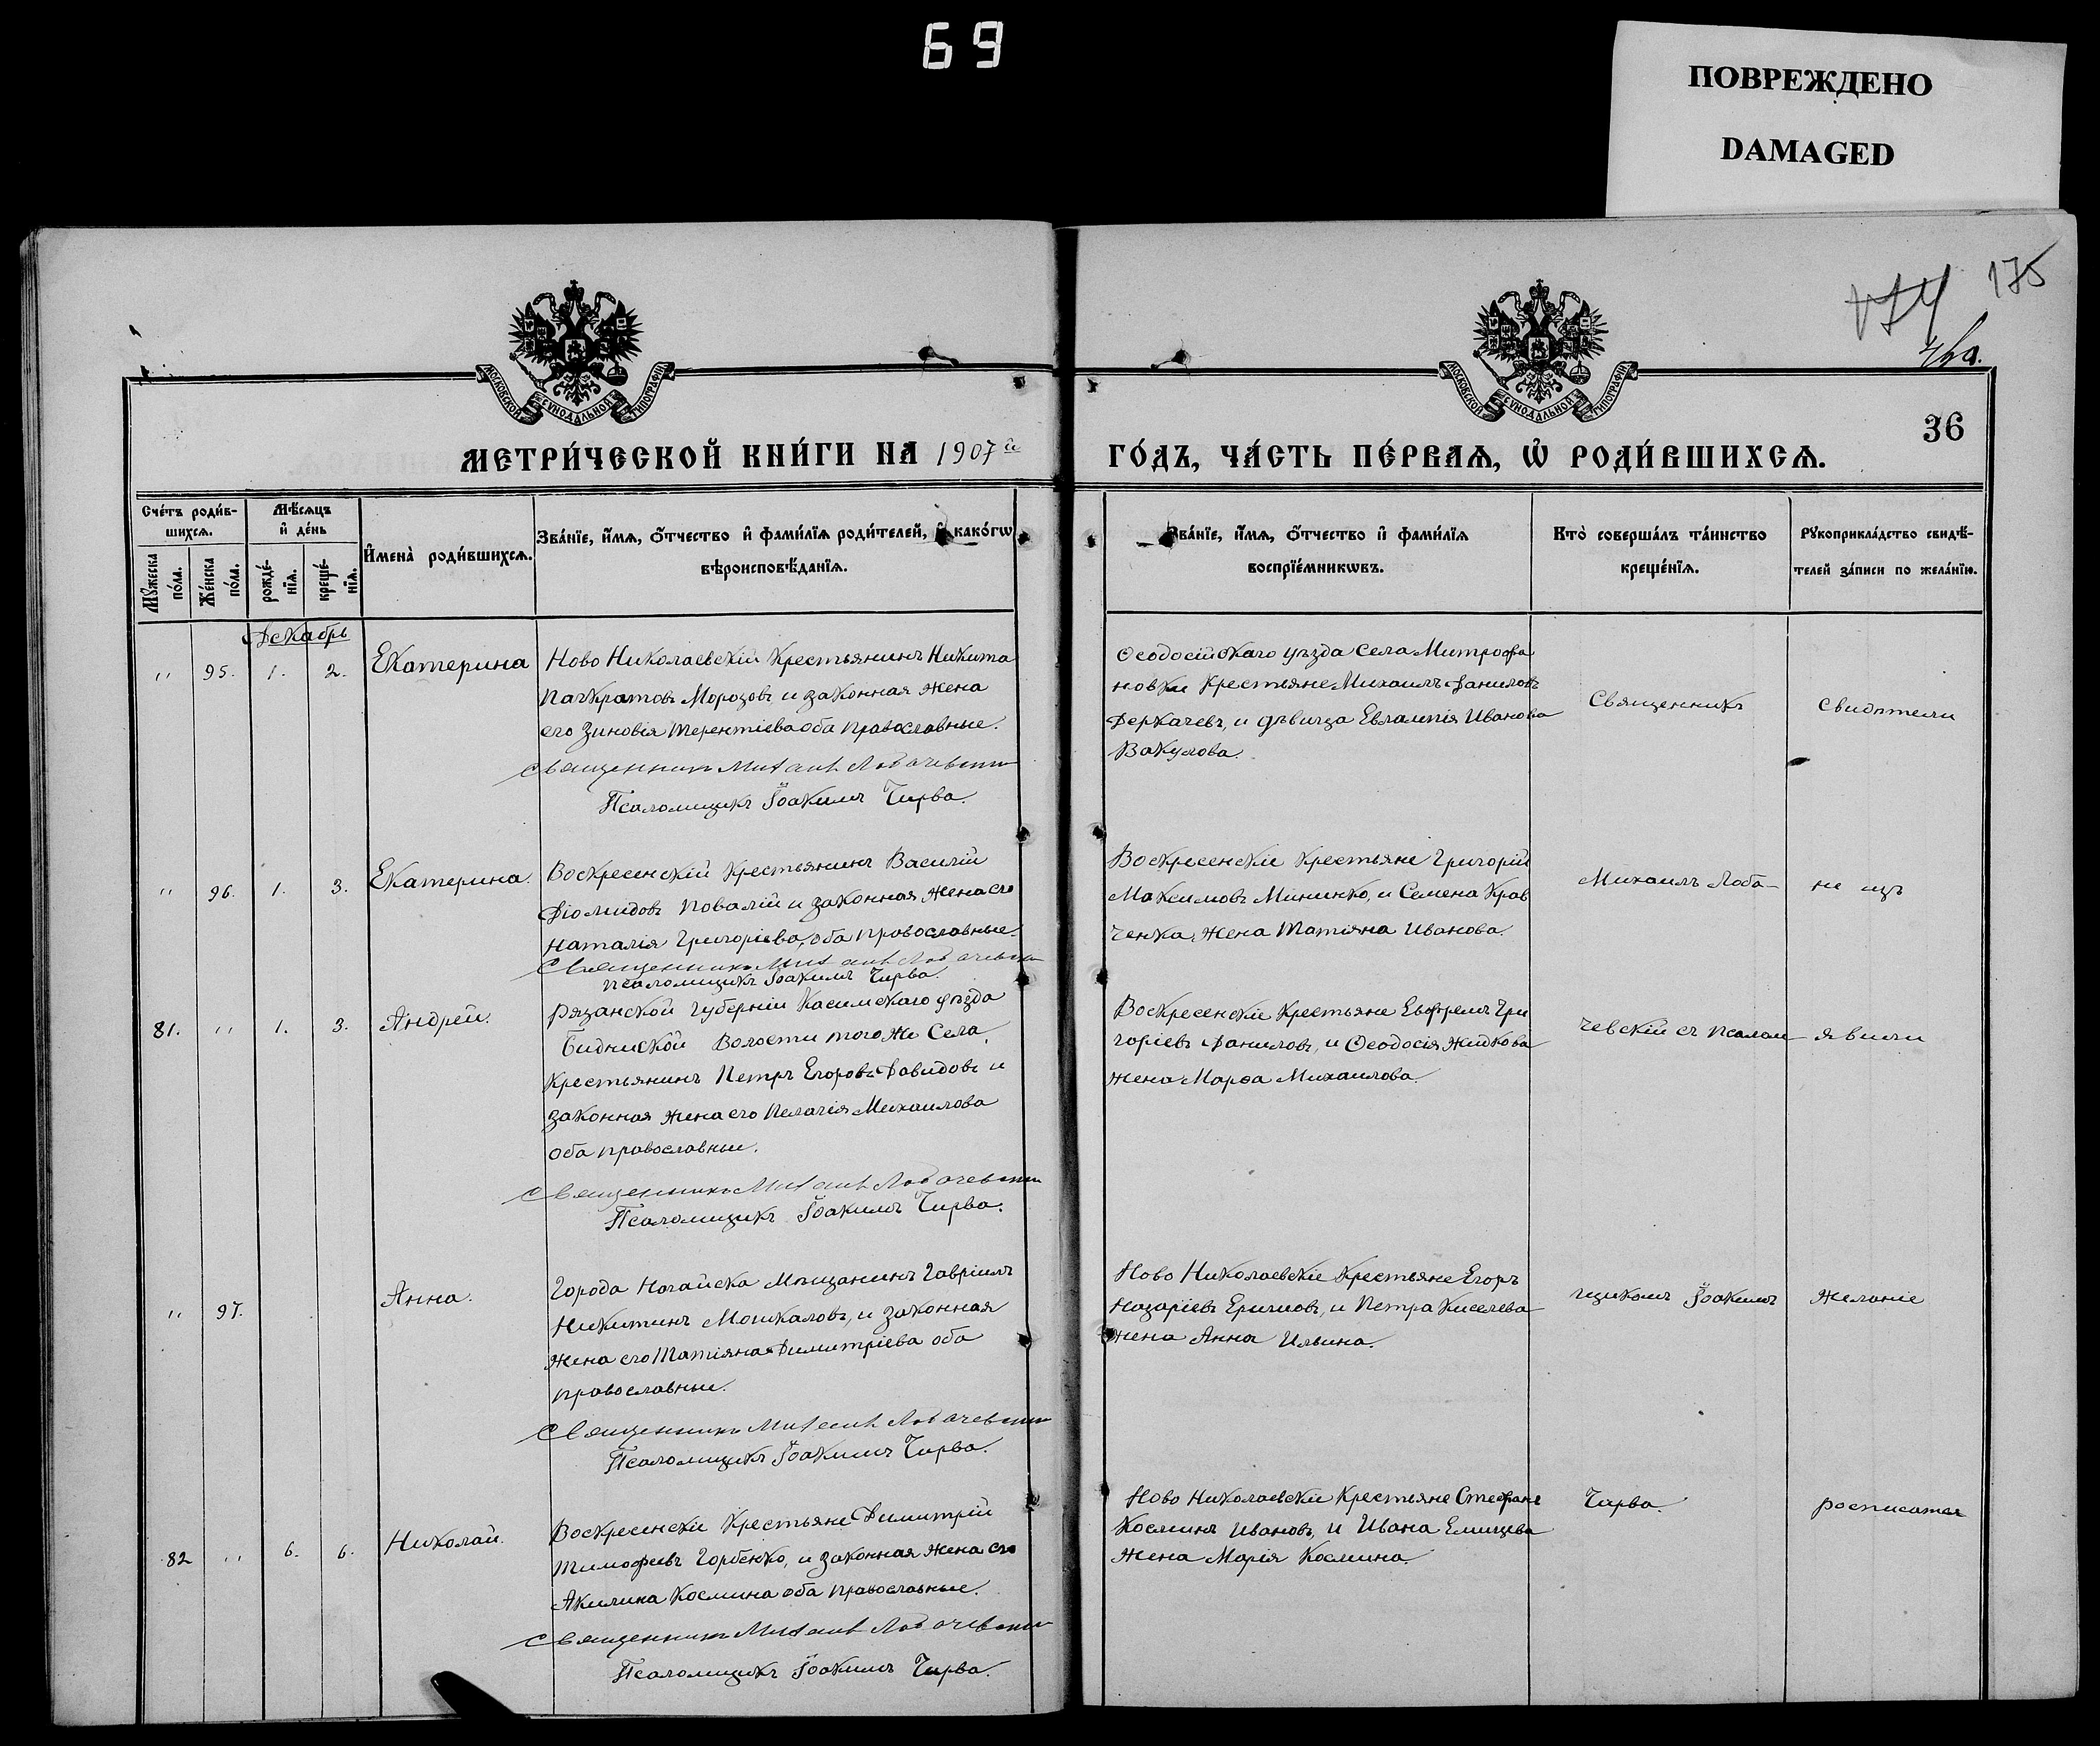 69
ПОВРЕЖДЕНО
DAMAGED
175
174
36
МОСКОВСКОЙ СѴНОДАЛЬНОЙ ТИПОГРАФІИ
МОСКОВСКОЙ СѴНОДАЛЬНОЙ ТИПОГРАФІИ
МЕТРИ́ЧЕСКОЙ КНИ́ГИ НА 1907й
ГО́ДЪ, ЧА́СТЬ ПЕ́РВАѦ, Ѡ҆ РОДИ́ВШИХСѦ.
Сче́тъ роди́в-
шихсѧ.
Мꙋ́жеска по́ла.
Же́нска по́ла.
Мѣ́сѧцъ
и҆ де́нь
рожде́-
нїѧ.
креще́-
нїѧ.
И҆мена̀ роди́вшихсѧ.
Зва́нїе, и҆́мѧ, ѻ҆́тчество и҆ фами́лїѧ роди́телей, и҆ како́гѡ
вѣроисповѣ́данїѧ.
Зва́нїе, и҆́мѧ, ѻ҆́тчество и҆ фами́лїѧ
воспрїе́мникѡвъ.
Кто̀ соверша́лъ та́инство
креще́нїѧ.
Рꙋкоприкла́дство свидѣ́-
телей за́писи по жела́нїю.
Декабрь
" 95. 1. 2. Екатерина
Ново Николаевскій Крестьянинъ Никита
Панкратовъ Морозовъ, и законная жена
его Зиновія Терентіева оба православные.
Священникъ Михаилъ Лобачевскій
Псаломщикъ Іоакимъ Чирва.
Ѳеодосійскаго уѣзда Села Митрофа
новки Крестьяне Михаилъ Даниловъ
Деркачевъ, и дѣвица Евлампія Иванова
Вакулова.
Священникъ
Свидѣтели
" 96. 1. 3. Екатерина.
Воскресенскій Крестьянинъ Василій
Діомидовъ Повалій и законная жена его
Наталія Григоріева, оба православные.
Священникъ Михаилъ Лобачевскій
Псаломщикъ Іоакимъ Чирва.
Воскресенскіе Крестьяне Григорій
Максимовъ Мининко, и Семена Крав
ченка, жена Татіяна Иванова.
Михаилъ Лоба-
не изъ
81. " 1. 3. Андрей.
Рязанской Губерніи Касимскаго уѣзда
Волости того же Села,
Крестьянинъ Петръ Егоровъ Давидовъ и
законная жена его Пелагія Михаилова
оба православные.
Священникъ Михаилъ Лобачевскій
Псаломщикъ Іоакимъ Чирва.
Воскресенскіе Крестьяне Евфремъ Гри
горіевъ Даниловъ, и Ѳеодосія Жидкова
жена Марѳа Михаилова.
чевскій съ псалом-
явили
" 97. Анна.
Города Ногайска Мѣщанинъ Гавріилъ
Никитинъ Мошкаловъ, и законная
жена его Татіяна Димитріева оба
православные.
Священникъ Михаилъ Лобачевскій
Псаломщикъ Іоакимъ Чирва.
Ново Николаевскіе Крестьяне Егоръ
Назаріевъ и Петра Киселева
жена Анна Ильина.
щикомъ Іоакимъ
желаніе
82 " 6. 6. Николай.
Воскресенскіе Крестьяне Димитрій
Тимофеевъ Горбенко, и законная жена его
Акилина Космина оба православные.
Священникъ Михаилъ Лобачевскій
Псаломщикъ Іоакимъ Чирва.
Ново Николаевскіе Крестьяне Стефанъ
Косминъ Ивановъ, и Ивана
жена Марія Космина.
Чирва.
росписатся